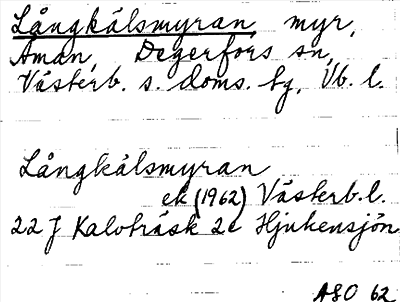 Långkälsmyran, myr,
Åman, Degerfors sn,
Västerb. s. doms. hg, Vb. l.
Långkälsmyran
ek (1962) Västerb. l.
22 J Kalvträsk 2c Hjukensjön
ASO 62